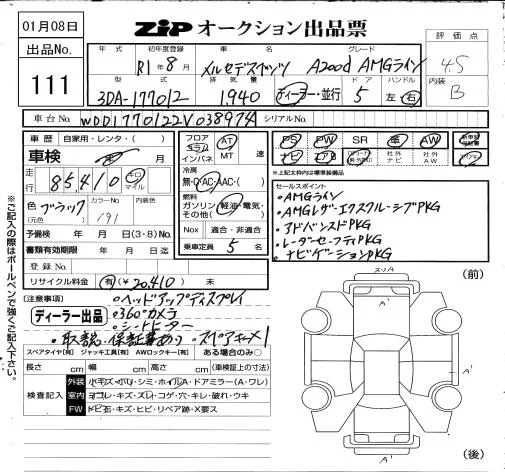 01月08日
ZIP オークション出品票
出品No.
111
年式
初年度登録
車名
グレード
評価点
R1年8月
メルセデスベンツ
A200d AMGライン
4.5
型式
排気量
ドア
ハンドル
内装
3DA-177012
1,940
ディーラー・並行
5
左・右
B
車台No.
WDD1770122V038974
シリアルNo.
車歴
自家用・レンタ・( )
フロア
コラム
インパネ
AT
MT
速
PS
PW
SR
革
AW
ナビ
エアB
社外
ナビ
社外
AW
車検
月
冷房
無・C・AC・AAC・( )
走行
85,410
キロ
マイル
燃料
ガソリン・軽油・電気・
その他( )
セールスポイント
・AMGライン
・AMGレザーエクスクルーシブPKG
・アドバンスドPKG
・レーダーセーフティPKG
・ナビゲーションPKG
色
ブラック
(元色)
カラーNo.
191
内装色
Nox
適合・非適合
予備検
年 月 日(3・8)No.
書類有効期限
年 月 日迄
乗車定員
5 名
登録No.
リサイクル料金
有(¥20,410)未
(注意事項)
ディーラー出品
・ヘッドアップディスプレイ
・360°カメラ
・シートヒーター
・取説・保証書あり・スペアキー×1
スペアタイヤ[有] ジャッキ工具[有] AWロックキー[有] ある場合のみ○
長さ cm
幅 cm
高さ cm
(車検証上の寸法)
検査記入
外装
小キズ・凹リ・シミ・ホイルA・ドアミラー(A・ワレ)
室内
ヨゴレ・キズ・スレ・コゲ・穴・キレ・破れ・ウキ
FW
トビ石・キズ・ヒビ・リペア跡・X要ス
※ご記入の際はボールペンで強くご記入下さい。
(前)
スリA
A'
A'
A'
(後)